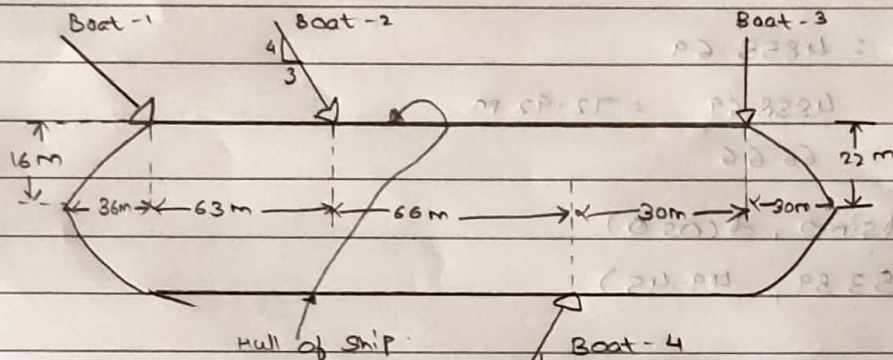 Boat-1
Boat-2
Boat-3
4
3
16m
22m
36m
63m
66m
30m
30m
Hull of ship
Boat-4